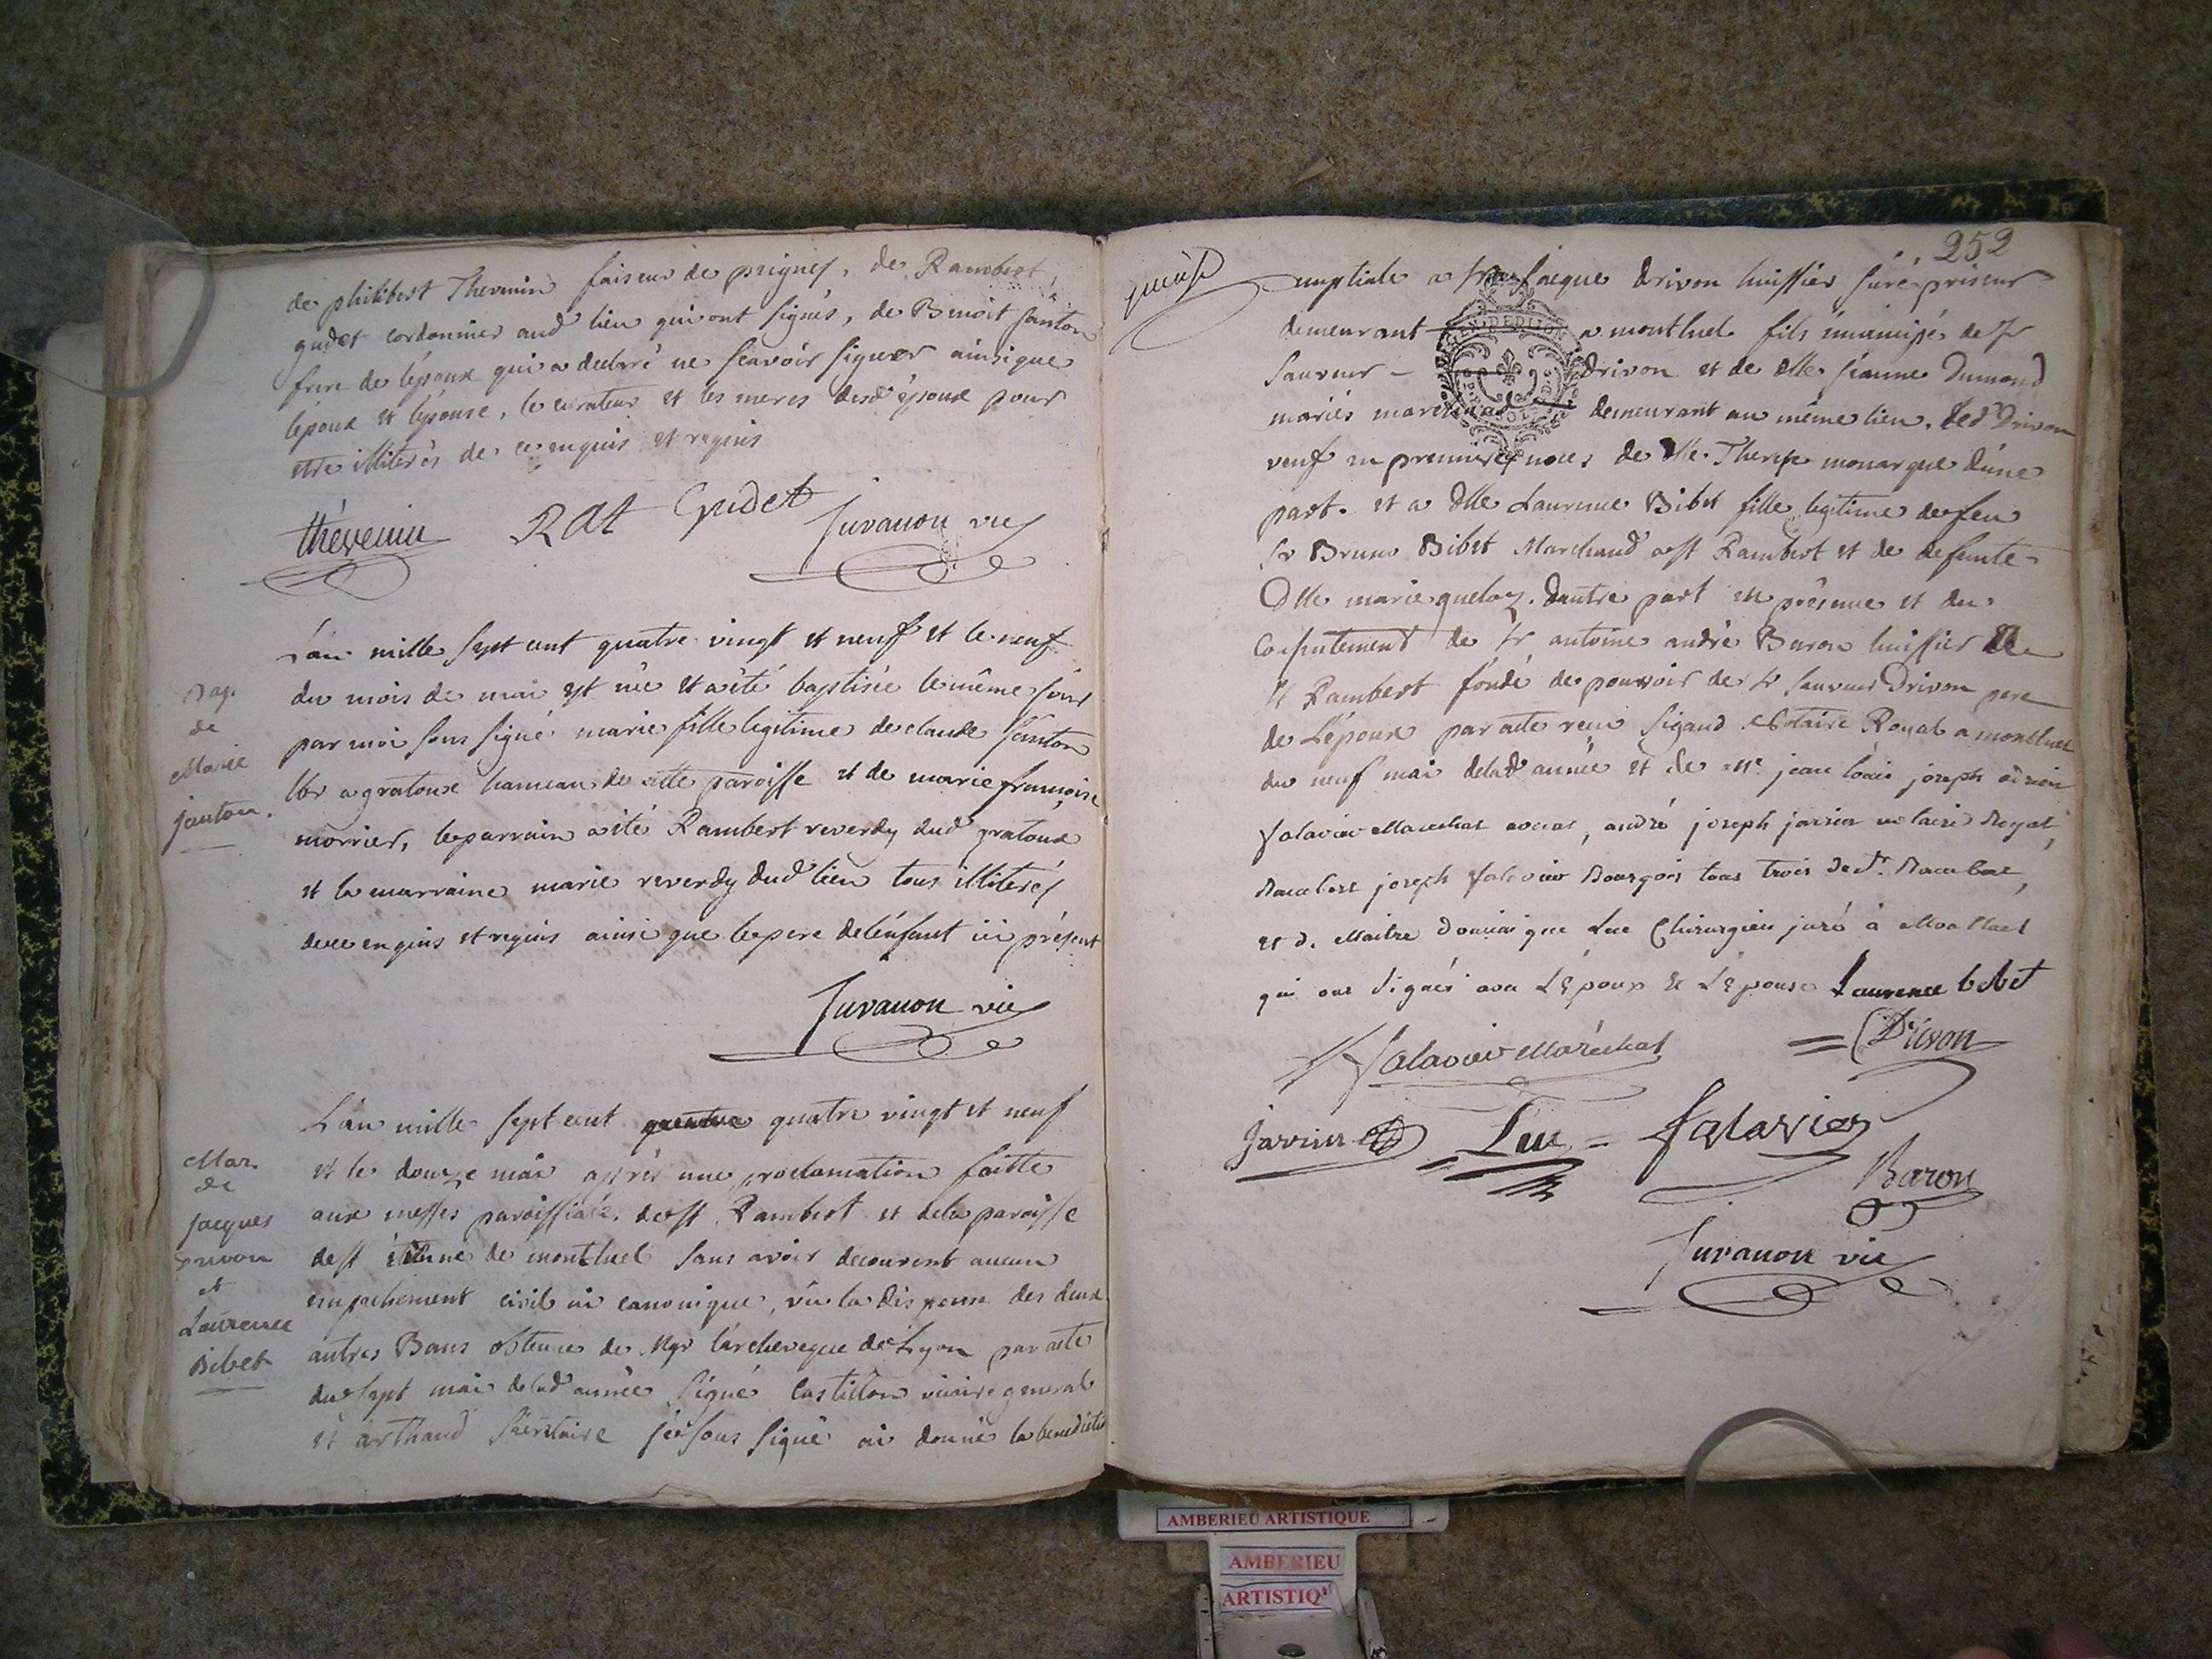 de philibert Thevenin faiseur de peignes, de Rambert
gudet cordonnier aud lieu qui ont signés, de Benoit janton
frere de l'epoux qui a declaré ne scavoir signer ainsi que
l'époux et l'épouse, le curateur et les meres desd époux pour
etre illiterés de ce enquis et requis
thévenin RAt Gudet Juvanon vic
Bap.
de
Marie
janton.
L'an mille sept cent quatre vingt et neuf et le neuf
du mois de mai est née et a été baptisée le même jour
par moi sous signé marie fille legitime de claude janton
lbr a gratoux hameau de cette paroisse et de marie françoise
morrier, le parrain a été Rambert reverdy dud gratoux
et la marraine marie reverdy dud lieu tous illiterés
de ce enquis et requis ainsi que le pere de l'enfant ici présent
Juvanon vic
Mar.
de
jacques
Drivon
et
Laurence
Bibet
L'an mille sept cent quatre vingt et neuf
et le douze mai après une proclamation faitte
aux messes paroissiales de st Rambert et de la paroisse
de st étienne de montluel sans avoir decouvert aucun
empechement civil ni canonique, vu la dispense des deux
autres Bans obtenue de Mgr l'archeveque de Lyon par acte
du sept mai de lad année signé Castillon vicaire general
et arthaud secrétaire je sous signé ai donné la benediction
252
nuptiale a sr jacque Drivon huissier juré priseur
demeurant a montluel fils émancipé de sr
sauveur Drivon et de dlle jeanne Dumond
mariés marchand demeurant au même lieu, led Drivon
veuf en premieres noces de dlle Therese monarque d'une
part. et a dlle Laurence Bibet fille legitime de feu
sr Bruno Bibet Marchand a st Rambert et de defunte
Dlle marie queloz. d'autre part en présence et du
consentement de sr antoine andré Baron huissier de
st Rambert fondé de pouvoir de sr sauveur Drivon pere
de L'époux par acte recu sigaud Notaire Royal a montluel
du neuf mai de lad année et de Me jean louis joseph adrien
falavier Marechal avocat, andré joseph jarrin notaire Royal,
Rambert joseph falavier Bourgois tous trois de st. Rambert,
et d. Maitre dominique Luc Chirurgien juré à Montluel
qui ont signés avec L'époux et L'épouse Laurence bibet
falavier Maréchal = Drivon
jarrin Luc = falavier
Baron
Juvanon vic
AMBERIEU ARTISTIQUE
AMBERIEU
ARTISTIQ